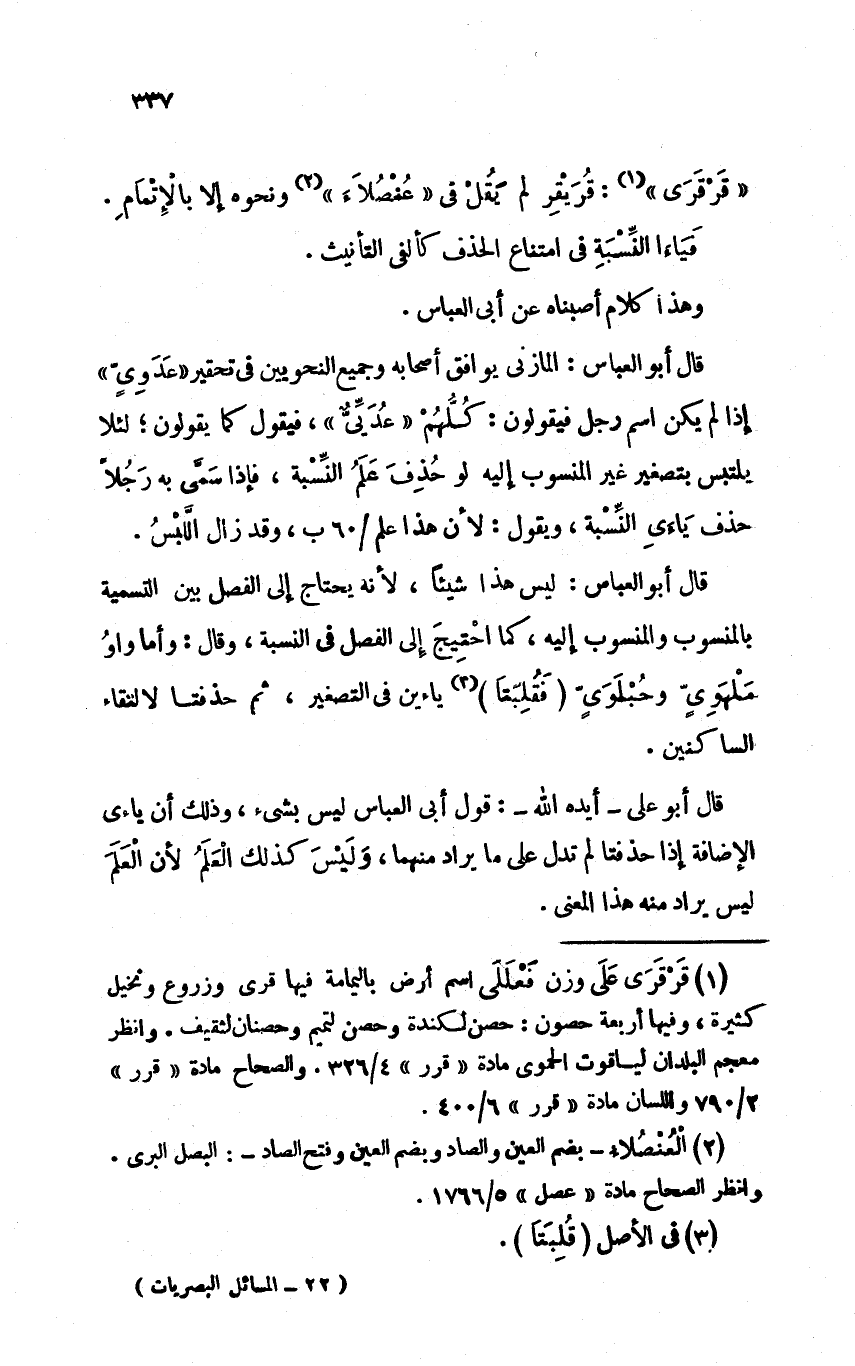 ٣٣٧
« قَرْقَرَى »(١) : قُرَيْقِرِ لم يَقُلْ فى « عُنْصُلَاءَ »(٢) ونحوه إلا بالْإِتْمَامِ .
فَيَاءَا النِّسْبَةِ فى امتناع الحذف كألفى التأنيث .
وهذا كلام أصبناه عن أبى العباس .
قال أبو العباس : المازنى يوافق أصحابه وجميع النحويين فى تحقير «عَدَوِىّ»
إذا لم يكن اسم رجل فيقولون : كُلُّهُمْ « عُدَيِّىٌّ » ، فيقول كما يقولون ؛ لئلا
يلتبس بتصغير غير المنسوب إليه لو حُذِفَ عَلَمُ النِّسْبة ، فإذا سَمَّى به رَجُلاً
حذف يَاءَىِ النِّسْبة ، ويقول : لأن هذا علم /٦٠ ب ، وقد زال اللَّبْسُ .
قال أبو العباس : ليس هذا شيئاً ، لأنه يحتاج إلى الفصل بين التسمية
بالمنسوب والمنسوب إليه ، كما احْتِيجَ إلى الفصل فى النسبة ، وقال : وأما واوُ
مَلْهَوِىّ وحُبْلَوَىّ ( فَقُلِبَتَا )(٣) ياءين فى التصغير ، ثم حذفتــا لالتقاء
الساكنين .
قال أبو على ــ أيده الله ــ : قول أبى العباس ليس بشىء ، وذلك أن ياءى
الإضافة إذا حذفتا لم تدل على ما يراد منهما ، وَلَيْسَ كذلك الْعَلَمُ لأن الْعَلَمَ
ليس يراد منه هذا المعنى .
(١) قَرْقَرَى عَلَى وزن فَعْلَلَى اسم أرض باليمامة فيها قرى وزروع ونخيل
كثيرة ، وفيها أربعة حصون : حصن لكندة وحصن لتميم وحصنان لثقيف . وانظر
معجم البلدان ليــاقوت الحموى مادة « قرر » ٣٢٦/٤ . والصحاح مادة « قرر »
٧٩٠/٢ واللسان مادة « قرر » ٤٠٠/٦ .
(٢) الْعُنْصُلاء ــ بضم العين والصاد وبضم العين وفتح الصاد ــ : البصل البرى .
وانظر الصحاح مادة « عصل » ١٧٦٦/٥ .
(٣) فى الأصل ( قُلِبَتَا ) .
( ٢٢ ــ المسائل البصريات )